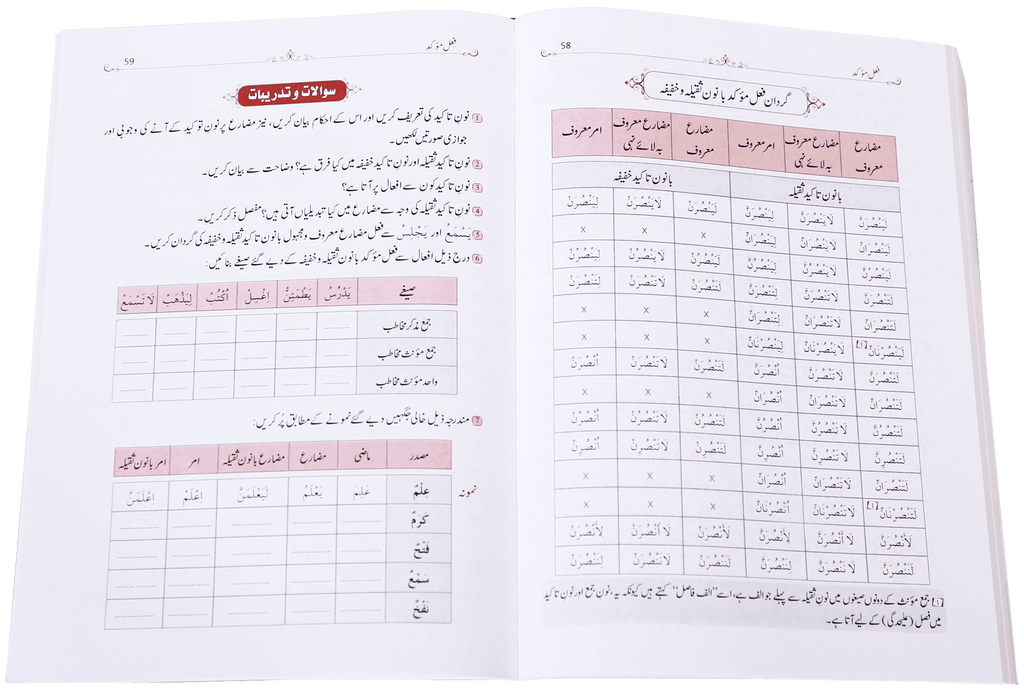 58
فعل مؤکد
گردان فعل مؤکد بانون ثقیلہ و خفیفہ
مضارع معروف مضارع معروف بہ لائے نہی امر معروف مضارع معروف مضارع معروف بہ لائے نہی امر معروف
بانون تاکید ثقیلہ بانون تاکید خفیفہ
لَیَنْصُرَنَّ لَا یَنْصُرَنَّ لِیَنْصُرَنَّ لَیَنْصُرَنْ لَا یَنْصُرَنْ لِیَنْصُرَنْ
لَیَنْصُرَانِّ لَا یَنْصُرَانِّ لِیَنْصُرَانِّ x x x
لَیَنْصُرُنَّ لَا یَنْصُرُنَّ لِیَنْصُرُنَّ لَیَنْصُرُنْ لَا یَنْصُرُنْ لِیَنْصُرُنْ
لَتَنْصُرَنَّ لَا تَنْصُرَنَّ لِتَنْصُرَنَّ لَتَنْصُرَنْ لَا تَنْصُرَنْ لِتَنْصُرَنْ
لَتَنْصُرَانِّ لَا تَنْصُرَانِّ لِتَنْصُرَانِّ x x x
لَیَنْصُرْنَانِّ [1] لَا یَنْصُرْنَانِّ لِیَنْصُرْنَانِّ x x x
لَتَنْصُرَنَّ لَا تَنْصُرَنَّ اُنْصُرَنَّ لَتَنْصُرَنْ لَا تَنْصُرَنْ اُنْصُرَنْ
لَتَنْصُرَانِّ لَا تَنْصُرَانِّ اُنْصُرَانِّ x x x
لَتَنْصُرُنَّ لَا تَنْصُرُنَّ اُنْصُرُنَّ لَتَنْصُرُنْ لَا تَنْصُرُنْ اُنْصُرُنْ
لَتَنْصُرِنَّ لَا تَنْصُرِنَّ اُنْصُرِنَّ لَتَنْصُرِنْ لَا تَنْصُرِنْ اُنْصُرِنْ
لَتَنْصُرَانِّ لَا تَنْصُرَانِّ اُنْصُرَانِّ x x x
لَتَنْصُرْنَانِّ [1] لَا تَنْصُرْنَانِّ اُنْصُرْنَانِّ x x x
لَأَنْصُرَنَّ لَا أَنْصُرَنَّ لِأَنْصُرَنَّ لَأَنْصُرَنْ لَا أَنْصُرَنْ لِأَنْصُرَنْ
لَنَنْصُرَنَّ لَا نَنْصُرَنَّ لِنَنْصُرَنَّ لَنَنْصُرَنْ لَا نَنْصُرَنْ لِنَنْصُرَنْ
[1] جمع مؤنث کے دونوں صیغوں میں نون ثقیلہ سے پہلے جو الف ہے، اسے ”الف فاصل“ کہتے ہیں کیونکہ یہ، نون جمع اور نون تاکید
میں فصل (علیحدگی) کے لیے آتا ہے۔
فعل مؤکد
59
سوالات و تدریبات
1 نون تاکید کی تعریف کریں اور اس کے احکام بیان کریں، نیز مضارع پر نون توکید کے آنے کی وجوبی اور
جوازی صورتیں لکھیں۔
2 نون تاکید ثقیلہ اور نون تاکید خفیفہ میں کیا فرق ہے؟ وضاحت سے بیان کریں۔
3 نون تاکید کون سے افعال پر آتا ہے؟
4 نون تاکید ثقیلہ کی وجہ سے مضارع میں کیا تبدیلیاں آتی ہیں؟ مفصل ذکر کریں۔
5 یَسْمَعُ اور یَجْلِسُ سے فعل مضارع معروف و مجہول بانون تاکید ثقیلہ و خفیفہ کی گردان کریں۔
6 درج ذیل افعال سے فعل مؤکد بانون ثقیلہ و خفیفہ کے دیے گئے صیغے بنائیں:
صیغے یَدْرُسُ یَطْمَئِنُّ اِغْسِلْ اُکْتُبْ لِیَذْهَبْ لَا تَسْمَعْ
جمع مذکر مخاطب
جمع مؤنث مخاطب
واحد مؤنث مخاطب
7 مندرجہ ذیل خالی جگہیں دیے گئے نمونے کے مطابق پُر کریں:
مصدر ماضی مضارع مضارع بانون ثقیلہ امر امر بانون ثقیلہ
نمونہ عِلْمٌ عَلِمَ یَعْلَمُ لَیَعْلَمَنَّ اِعْلَمْ اِعْلَمَنَّ
کَرَمٌ
فَتْحٌ
سَمْعٌ
نَفْحٌ